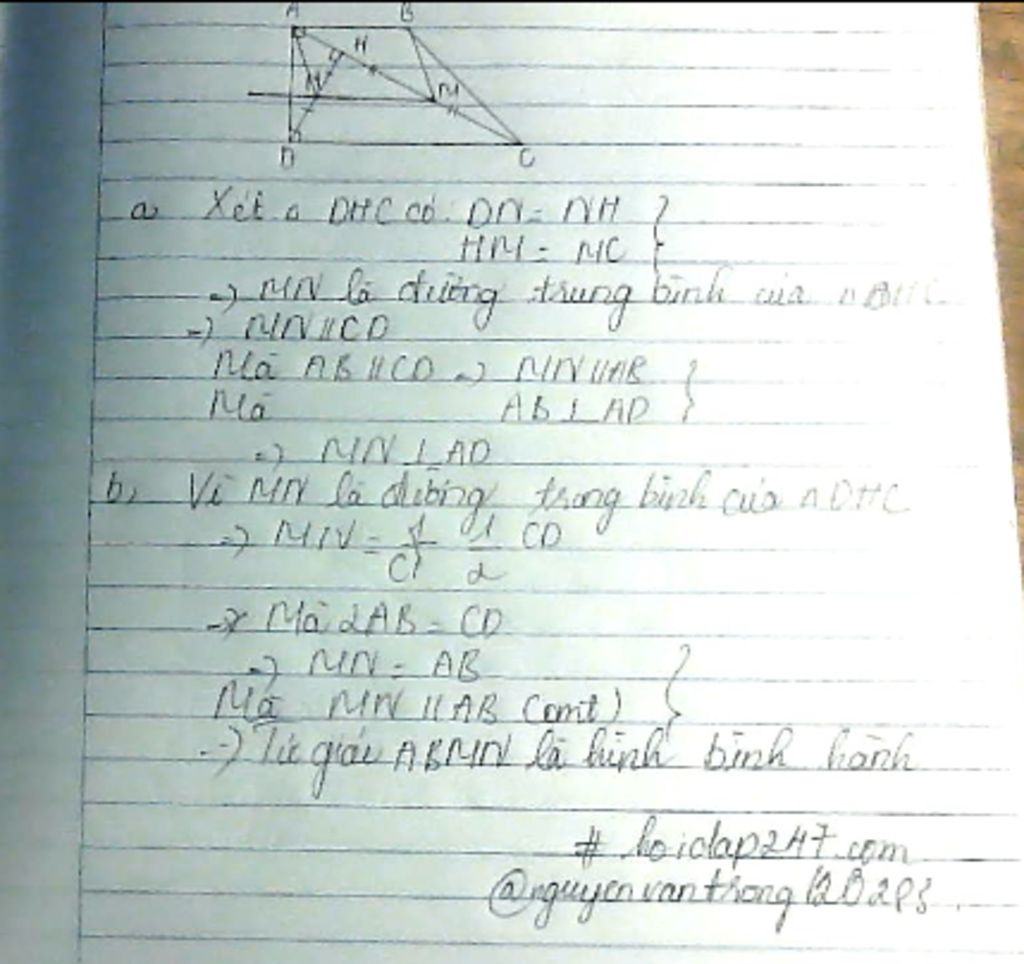 A B
H
N M
D C
a, Xét Δ DHC có: DN = NH }
HM = MC
=> MN là đường trung bình của Δ
=> MN // CD
Mà AB // CD => MN // AB }
Mà AB ⊥ AD
=> MN ⊥ AD
b, Vì MN là đường trung bình của Δ DHC
=> MN = 1/2 CD
Mà 2AB = CD
=> MN = AB }
Mà MN // AB (cmt)
=> Tứ giác ABMN là hình bình hành
# hoidap247.com